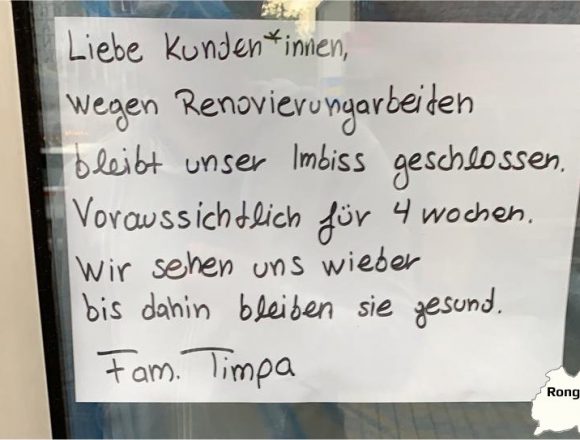 Liebe Kunden*innen,
wegen Renovierungarbeiten
bleibt unser Imbiss geschlossen.
Voraussichtlich für 4 wochen.
wir sehen uns wieder
bis dahin bleiben sie gesund.
Fam. Timpa
Rong